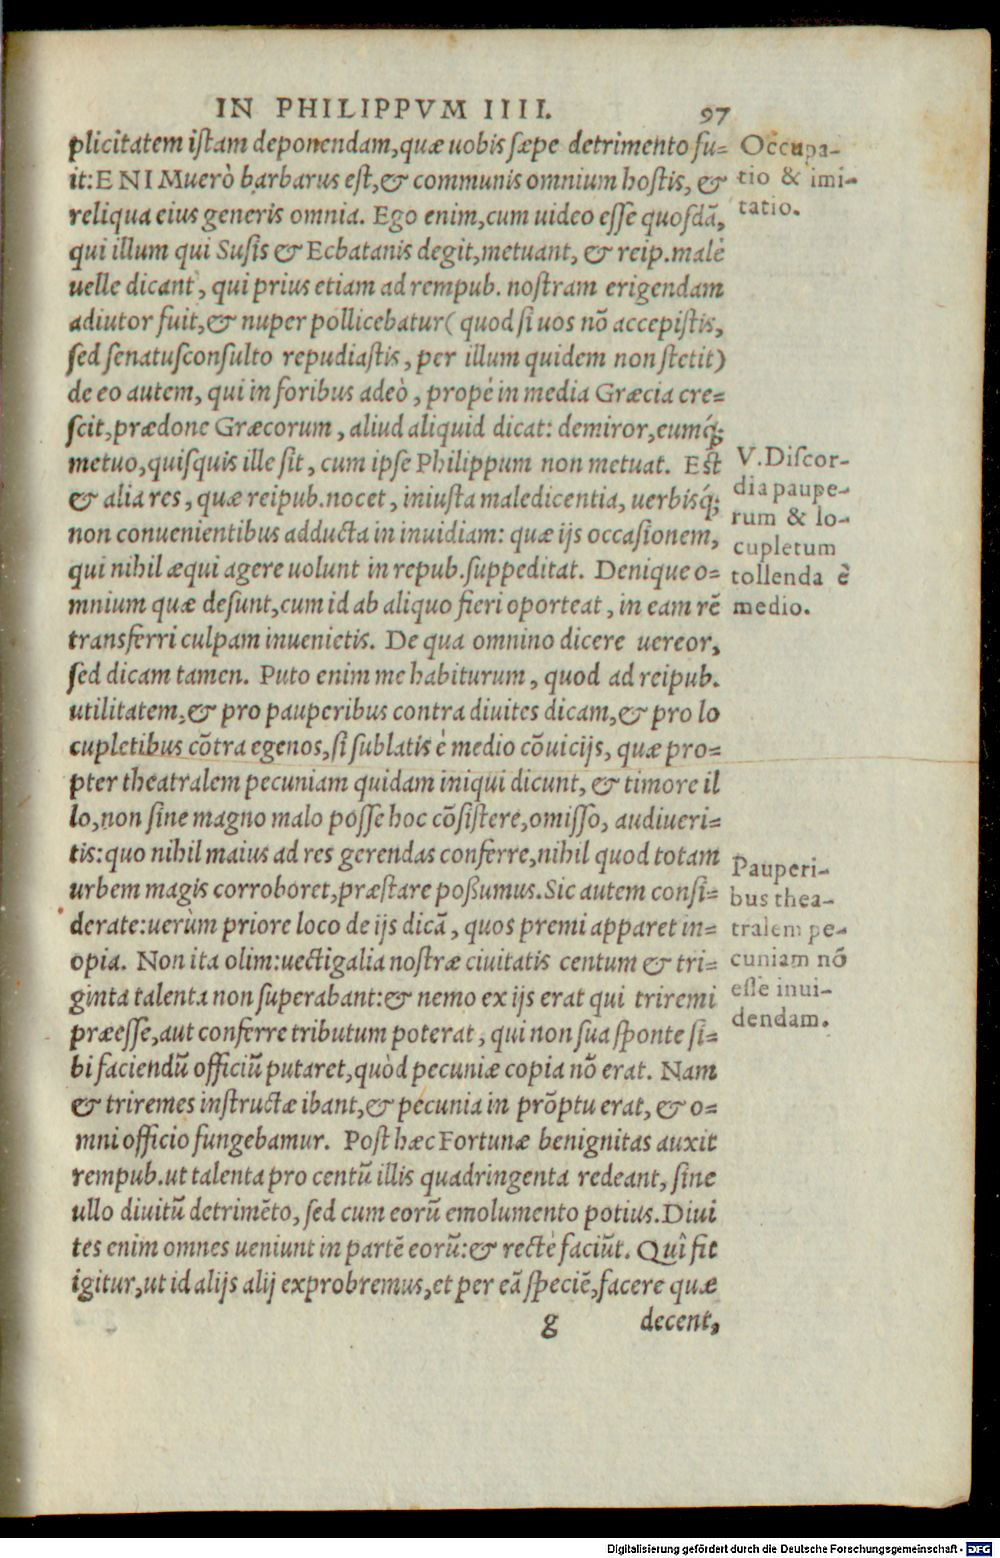 IN PHILIPPVM IIII. 97
plicitatem istam deponendam, quæ uobis sæpe detrimento fu=
it: ENIMuerò barbarus est, & communis omnium hostis, &
reliqua eius generis omnia. Ego enim, cum uideo esse quosdā,
qui illum qui Susis & Ecbatanis degit, metuant, & reip. malè
uelle dicant, qui prius etiam ad rempub. nostram erigendam
adiutor fuit, & nuper pollicebatur (quod si uos nō accepistis,
sed senatusconsulto repudiastis, per illum quidem non stetit)
de eo autem, qui in foribus adeò, propè in media Græcia cre=
scit, prædone Græcorum, aliud aliquid dicat: demiror, eumq́;
metuo, quisquis ille sit, cum ipse Philippum non metuat. Est
& alia res, quæ reipub. nocet, iniusta maledicentia, uerbisq́;
non conuenientibus adducta in inuidiam: quæ ijs occasionem,
qui nihil æqui agere uolunt in repub. suppeditat. Denique o=
mnium quæ desunt, cum id ab aliquo fieri oporteat, in eam rē
transferri culpam inuenietis. De qua omnino dicere uereor,
sed dicam tamen. Puto enim me habiturum, quod ad reipub.
utilitatem, & pro pauperibus contra diuites dicam, & pro lo
cupletibus cōtra egenos, si sublatis è medio cōuicijs, quæ pro=
pter theatralem pecuniam quidam iniqui dicunt, & timore il
lo, non sine magno malo posse hoc cōsistere, omisso, audiueri=
tis: quo nihil maius ad res gerendas conferre, nihil quod totam
urbem magis corroboret, præstare possumus. Sic autem consi=
derate: uerùm priore loco de ijs dicā, quos premi apparet in=
opia. Non ita olim: uectigalia nostræ ciuitatis centum & tri=
ginta talenta non superabant: & nemo ex ijs erat qui triremi
præesse, aut conferre tributum poterat, qui non sua sponte si=
bi faciendū officiū putaret, quòd pecuniæ copia nō erat. Nam
& triremes instructæ ibant, & pecunia in prōptu erat, & o=
mni officio fungebamur. Post hæc Fortunæ benignitas auxit
rempub. ut talenta pro centū illis quadringenta redeant, sine
ullo diuitū detrimēto, sed cum eorū emolumento potius. Diui
tes enim omnes ueniunt in partē eorū: & rectè faciūt. Quî fit
igitur, ut id alijs alij exprobremus, et per eā speciē, facere quæ
g decent,
Occupa-
tio & imi-
tatio.
V. Discor-
dia paupe-
rum & lo-
cupletum
tollenda è
medio.
Pauperi-
bus thea-
tralem pe-
cuniam nō
esse inui-
dendam.
Digitalisierung gefördert durch die Deutsche Forschungsgemeinschaft - DFG